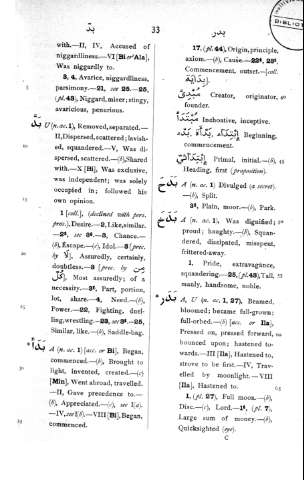 بدّ
33
بدر
with.—II, IV, Accused of
niggardliness.—VI [Bi or 'Ala],
Was niggardly to.
3, 4, Avarice, niggardliness,
parsimony.—21, see 25.—25,
(pl. 43), Niggard, miser; stingy,
avaricious, penurious.
بدّ U (n. ac. 1), Removed, separated.—
II, Dispersed, scattered; lavish-
ed, squandered.—V, Was di-
spersed, scattered.—(b), Shared
with.—X [Bi], Was exclusive,
was independent; was solely
occupied in; followed his
own opinion.
1 [coll.], (declined with pers.
pron.), Desire.—2, Like, similar.
—2t, see 3t.—3, Chance.—
(b), Escape.—(c), Idol.—3 [prec.
by لا], Assuredly, certainly,
doubtless.—3 [prec. by من
كلّ], Most assuredly; of a
necessity.—3t, Part, portion,
lot, share.—4, Need.—(b),
Power.—22, Fighting, duel-
ling, wrestling.—23, see 3t.—25,
Similar, like.—(b), Saddle-bag.
بدأ A (n. ac. 1) [acc. or Bi], Began,
commenced.—(b), Brought to
light, invented, created.—(c)
[Min], Went abroad, travelled.
—II, Gave precedence to.—
(b), Appreciated.—(c), see I(a).
—IV, see I(b).—VIII [Bi], Began,
commenced.
17, (pl. 44), Origin, principle,
axiom.—(b), Cause.—22t, 23t,
Commencement, outset.—[coll.
بداية]
مبدئ Creator, originator,
founder.
مبتدأ Indefinite, inceptive.
ابتداء Beginning,
commencement.
ابتدائي Primal, initial.—(b),
Heading, first (proposition).
بدح A (n. ac. 1) Divulged (a secret).
—(b), Split.
3t, Plain, moor.—(b), Park.
بدخ A (n. ac. 1), Was dignified;
proud; haughty.—(b), Squan-
dered, dissipated, misspent,
frittered-away.
1, Pride, extravagance,
squandering.—25, (pl. 43), Tall,
manly, handsome, noble.
بدر A, U (n. ac. 1, 27), Beamed,
bloomed; became full-grown;
full-orbed.—(b) [acc. or Ila],
Pressed on, pressed forward,
bounced upon; hastened to-
wards.—III [Ila], Hastened to,
strove to be first.—IV, Trav-
elled by moonlight.—VIII
[Ila], Hastened to.
1, (pl. 27), Full moon.—(b),
Disc.—(c), Lord.—1t, (pl. 7),
Large sum of money.—(b),
Quicksighted (eye).
C